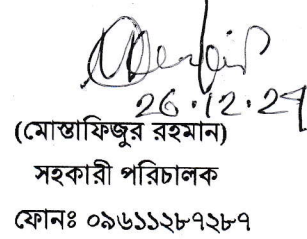 26.12.24
(মোস্তাফিজুর রহমান)
সহকারী পরিচালক
ফোনঃ ০৯৬১১২৮৭২৮৭